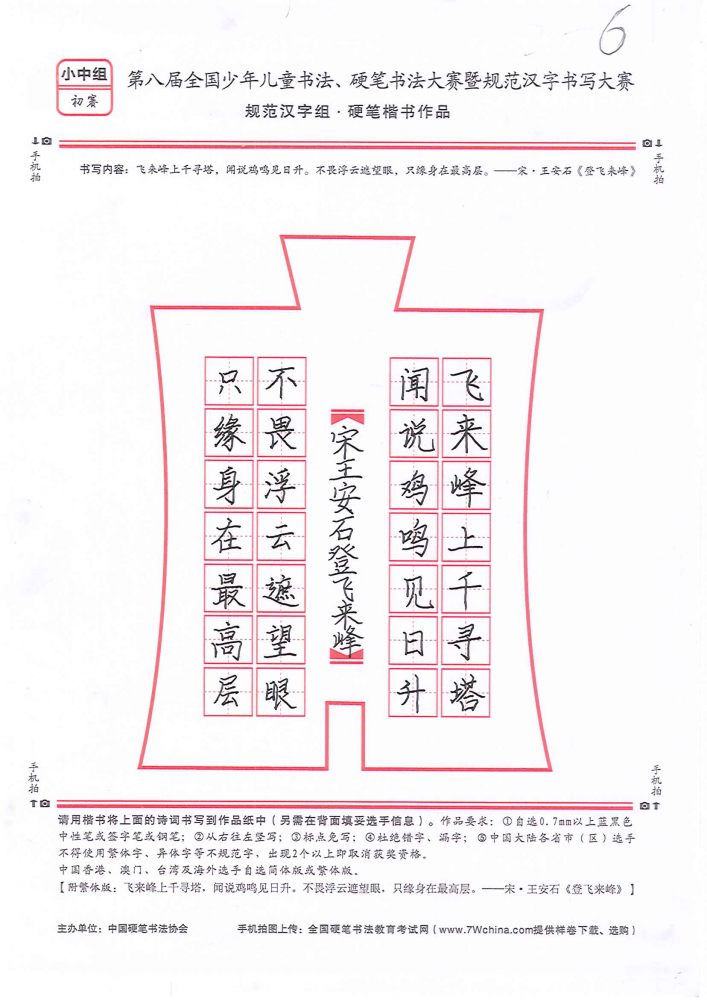 6
小中组
初赛
第八届全国少年儿童书法、硬笔书法大赛暨规范汉字书写大赛
规范汉字组·硬笔楷书作品
手机拍
手机拍
书写内容：飞来峰上千寻塔，闻说鸡鸣见日升。不畏浮云遮望眼，只缘身在最高层。——宋·王安石《登飞来峰》
飞来峰上千寻塔
闻说鸡鸣见日升
宋王安石登飞来峰
不畏浮云遮望眼
只缘身在最高层
手机拍
手机拍
请用楷书将上面的诗词书写到作品纸中（另需在背面填妥选手信息）。作品要求：①自选0.7mm以上蓝黑色
中性笔或签字笔或钢笔；②从右往左竖写；③标点免写；④杜绝错字、漏字；⑤中国大陆各省市（区）选手
不得使用繁体字、异体字等不规范字，出现2个以上即取消获奖资格。
中国香港、澳门、台湾及海外选手自选简体版或繁体版。
【附繁体版：飞来峰上千寻塔，闻说鸡鸣见日升。不畏浮云遮望眼，只缘身在最高层。——宋·王安石《登飞来峰》】
主办单位：中国硬笔书法协会
手机拍图上传：全国硬笔书法教育考试网（www.7Wchina.com提供样卷下载、选购）